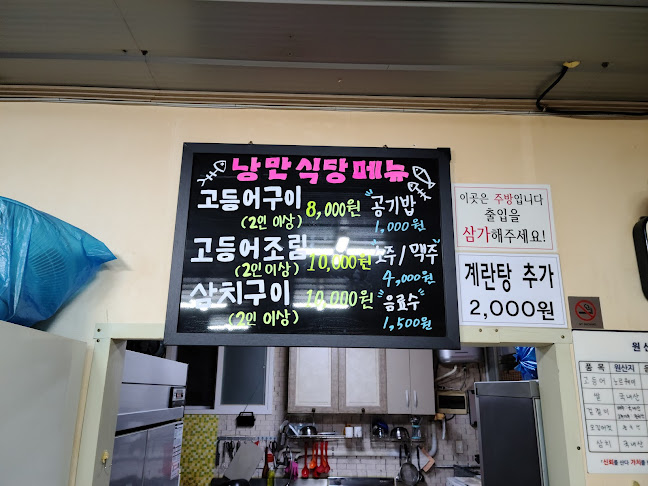 낭만식당메뉴
고등어구이 8,000원
(2인 이상)
고등어조림 10,000원
(2인 이상)
삼치구이 10,000원
(2인 이상)
"공기밥"
1,000원
소주/맥주
4,000원
"음료수"
1,500원
이곳은 주방입니다
출입을
삼가해주세요!
계란탕 추가
2,000원
원산
품 목 원산지
고등어 노르웨이
쌀 국내산
삼치 국내산
"신뢰를 산다 가치를